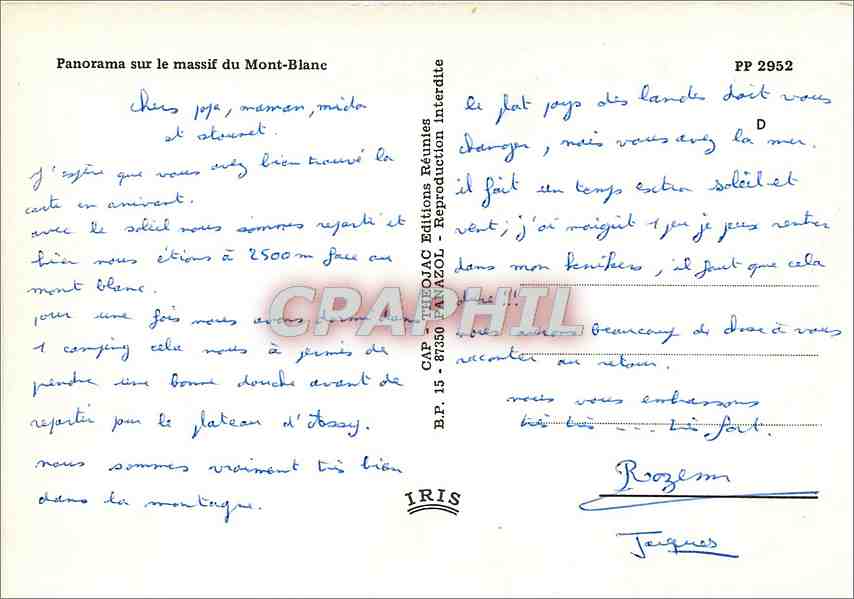 Panorama sur le massif du Mont-Blanc
PP 2952
chers papa, maman, mida
et
J'espère que vous avez bien trouvé la
carte en arrivant.
avec le soleil nous sommes reparti et
hier nous étions à 2500m face au
mont blanc.
pour une fois nous avons dormi dans
1 camping cela nous à permis de
prendre une bonne douche avant de
repartir par le plateau d'Assy.
nous sommes vraiment très bien
dans la montagne.
CAP - THEOJAC Editions Réunies
B.P. 15 - 87350 PANAZOL - Reproduction Interdite
IRIS
le plat pays des landes doit vous
D
changer, mais vous avez la mer.
il fait un temps extra soleil et
vent; j'ai maigri 1 peu je peux rentrer
dans mon knikers, il faut que cela
dure!!!
nous aurons beaucoup de chose à vous
raconter au retour.
nous vous embrassons
très très ... très fort.
Rozenn
Jacques
CPAPHIL